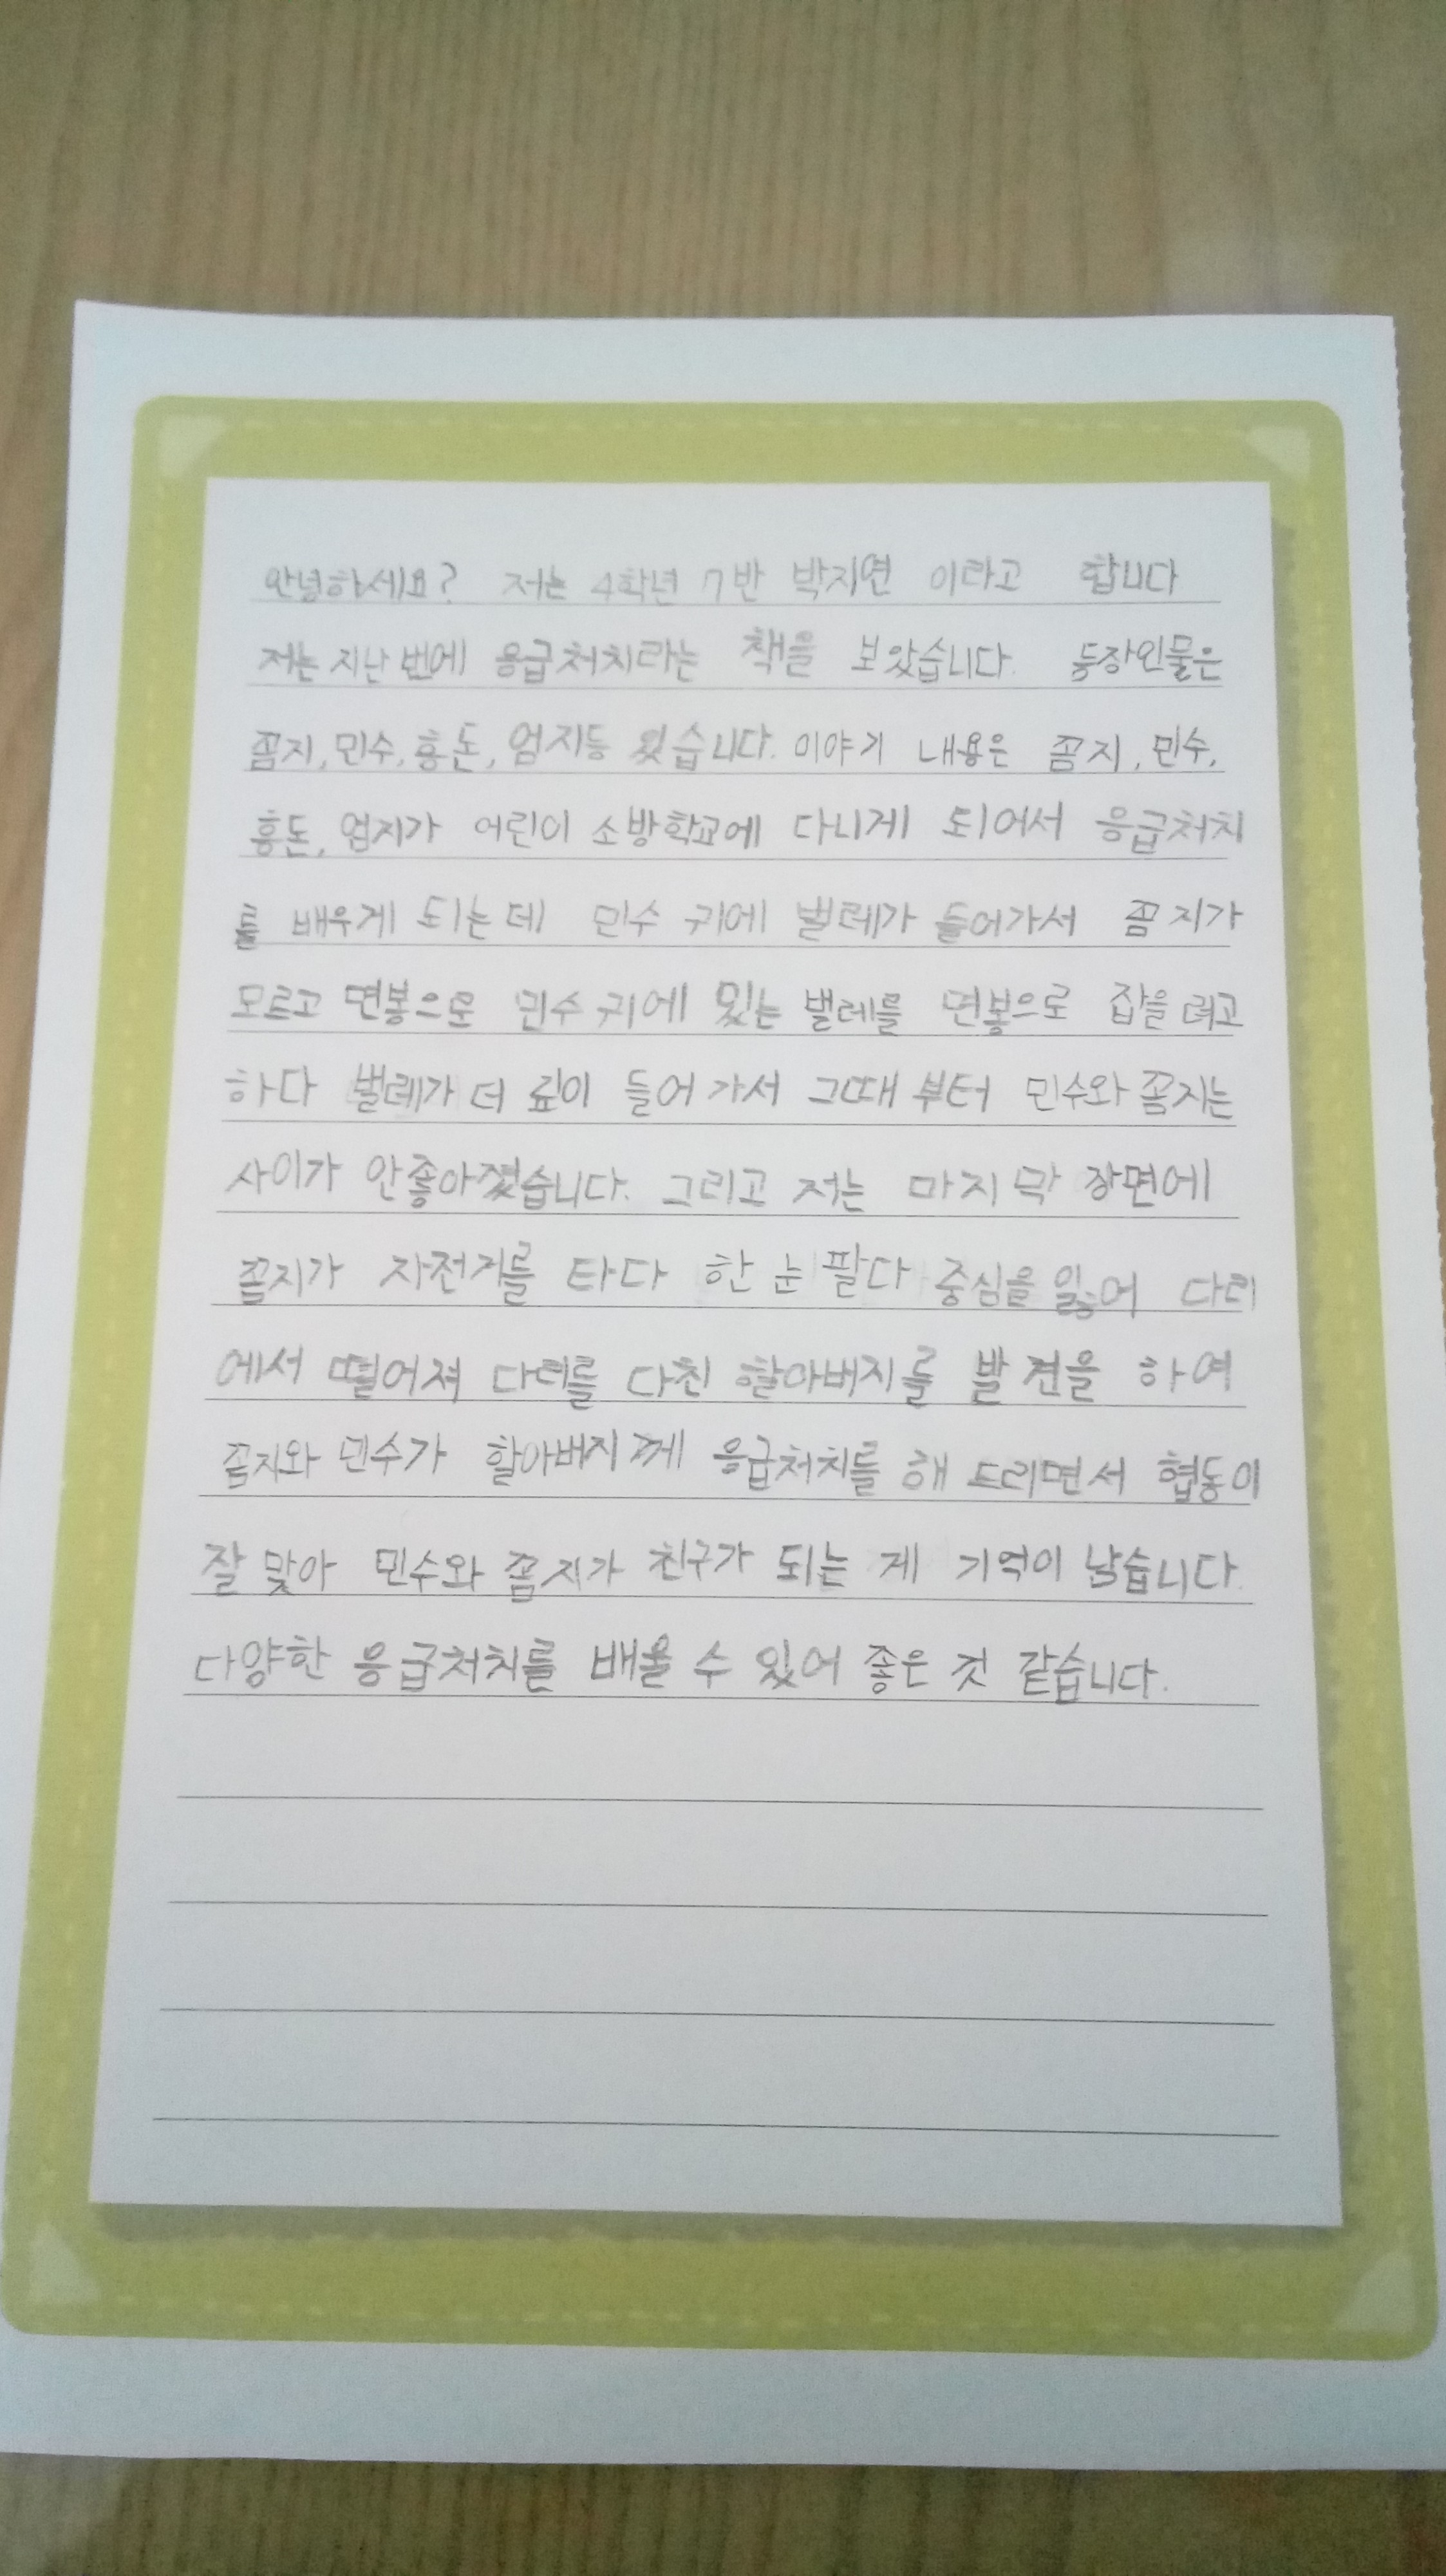 안녕하세요? 저는 4학년 7반 박지연 이라고 합니다
저는 지난 번에 응급처치라는 책을 보았습니다. 등장인물은
꼼지, 민수, 홍돈, 엄지등 있습니다. 이야기 내용은 꼼지, 민수,
홍돈, 엄지가 어린이 소방학교에 다니게 되어서 응급처치
를 배우게 되는데 민수 귀에 벌레가 들어가서 꼼지가
모르고 면봉으로 민수 귀에 있는 벌레를 면봉으로 잡을려고
하다 벌레가 더 깊이 들어가서 그때부터 민수와 꼼지는
사이가 안좋아졌습니다. 그리고 저는 마지막 장면에
꼼지가 자전거를 타다 한 눈 팔다 중심을 잃어 다리
에서 떨어져 다리를 다친 할아버지를 발견을 하여
꼼지와 민수가 할아버지께 응급처치를 해 드리면서 협동이
잘 맞아 민수와 꼼지가 친구가 되는 게 기억이 남습니다.
다양한 응급처치를 배울 수 있어 좋은 것 같습니다.